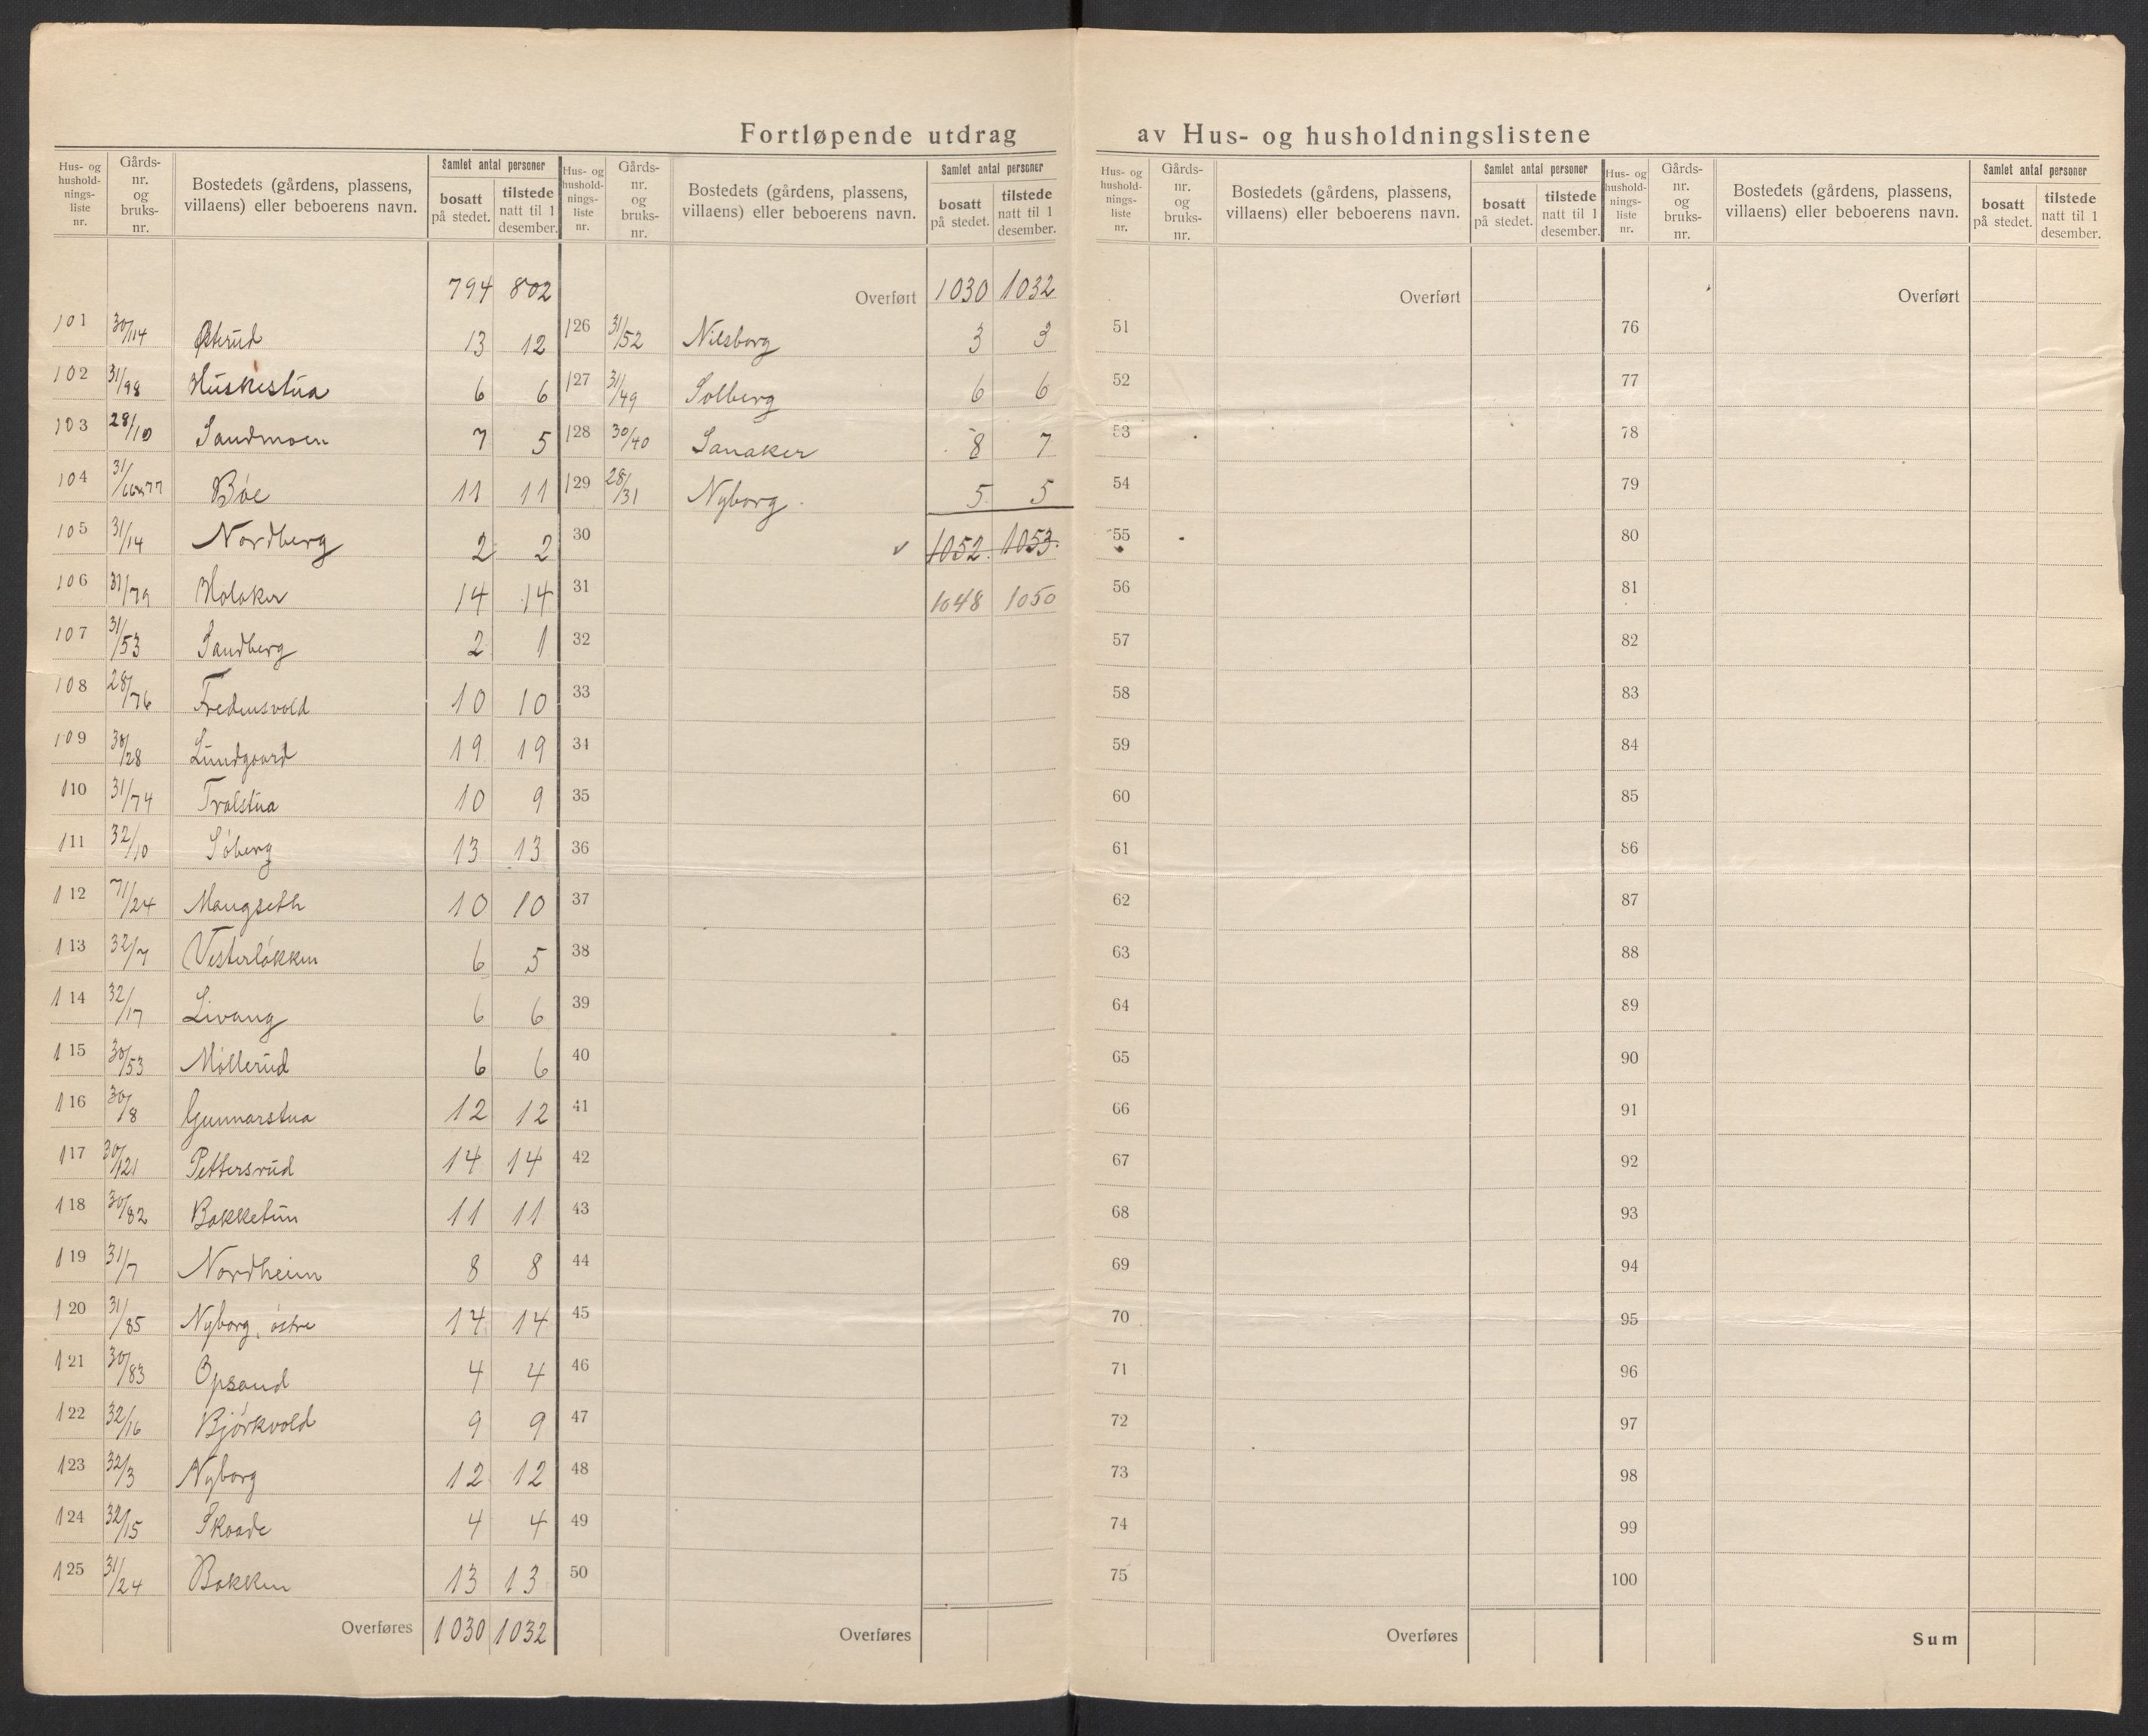 Fortløpende utdrag av Hus- og husholdningslistene
Hus- og husholdningsliste nr. | Gårdsnr. og bruksnr. | Bostedets (gårdens, plassens, villaens) eller beboerens navn. | Samlet antal personer bosatt på stedet. | tilstede natt til 1 desember.
794 802
101 30/114 Østerud 13 12
102 31/98 Huskestua 6 6
103 28/10 Sandmoen 7 5
104 Bøe 11 11
105 31/14 Nordberg 2 2
106 31/79 Holaker 14 14
107 31/53 Sandberg 2 1
108 28/76 Fredensvold 10 10
109 30/28 Lundgaard 19 19
110 31/74 Trolstua 10 9
111 32/10 Søberg 13 13
112 71/24 Maugseth 10 10
113 32/7 Vesterløkken 6 5
114 32/17 Livang 6 6
115 30/53 Møllerud 6 6
116 30/8 Gunnarstua 12 12
117 30/121 Pettersrud 14 14
118 30/82 Bakketun 11 11
119 31/7 Nordheim 8 8
120 31/85 Nyborg, østre 14 14
121 30/83 Opsand 4 4
122 32/16 Bjørkvold 9 9
123 32/3 Nyborg 12 12
124 32/15 Skaade 4 4
125 31/24 Bakken 13 13
Overføres 1030 1032
Hus- og husholdningsliste nr. | Gårdsnr. og bruksnr. | Bostedets (gårdens, plassens, villaens) eller beboerens navn. | Samlet antal personer bosatt på stedet. | tilstede natt til 1 desember.
Overført 1030 1032
126 31/52 Nilsborg 3 3
127 31/49 Solberg 6 6
128 30/40 Sanaker 8 7
129 28/31 Nyborg 5 5
30 1052 1053
31 1048 1050
32
33
34
35
36
37
38
39
40
41
42
43
44
45
46
47
48
49
50
Overføres
Hus- og husholdningsliste nr. | Gårdsnr. og bruksnr. | Bostedets (gårdens, plassens, villaens) eller beboerens navn. | Samlet antal personer bosatt på stedet. | tilstede natt til 1 desember.
Overført
51
52
53
54
55
56
57
58
59
60
61
62
63
64
65
66
67
68
69
70
71
72
73
74
75
Overføres
Hus- og husholdningsliste nr. | Gårdsnr. og bruksnr. | Bostedets (gårdens, plassens, villaens) eller beboerens navn. | Samlet antal personer bosatt på stedet. | tilstede natt til 1 desember.
Overført
76
77
78
79
80
81
82
83
84
85
86
87
88
89
90
91
92
93
94
95
96
97
98
99
100
Sum